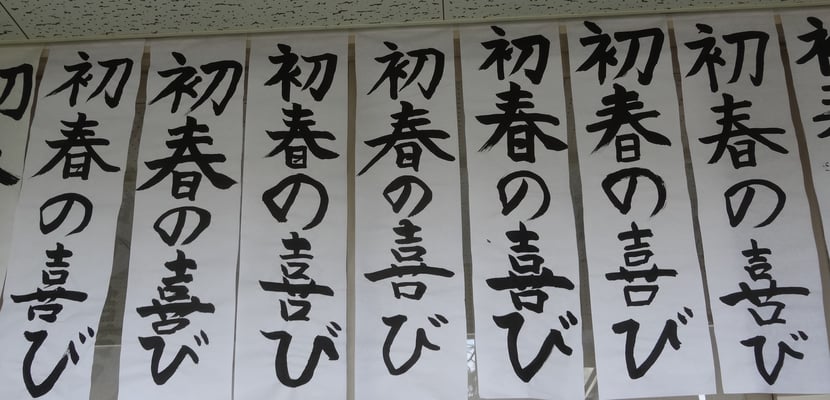 初春の喜び
初春の喜び
初春の喜び
初春の喜び
初春の喜び
初春の喜び
初春の喜び